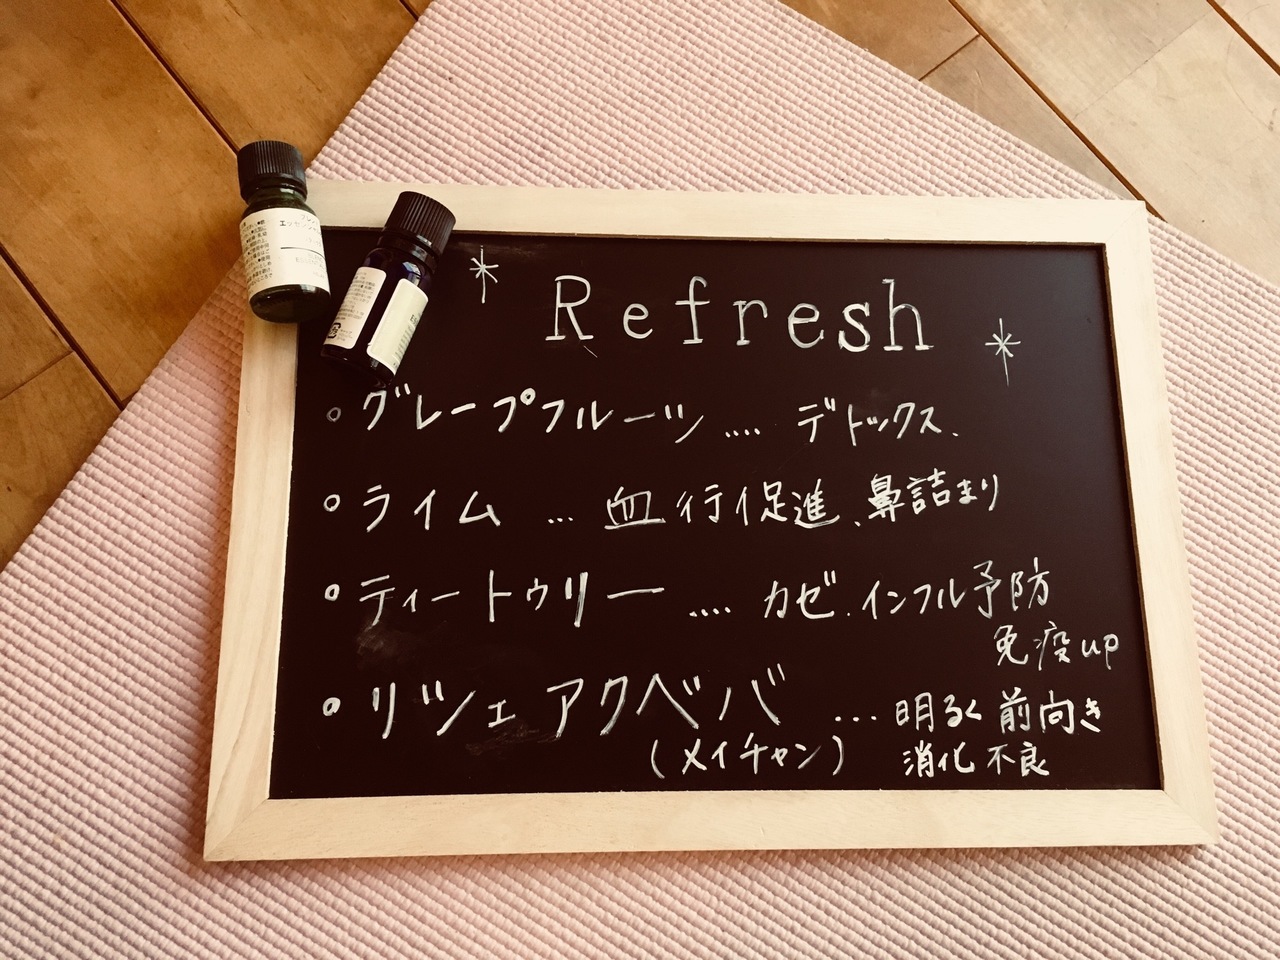 Refresh
。グレープフルーツ .... デトックス、
。ライム ... 血行促進、鼻詰まり
。ティートゥリー .... カゼ、インフル予防
免疫up
。リツェアクベバ ... 明るく前向き
(メイチャン) 消化不良